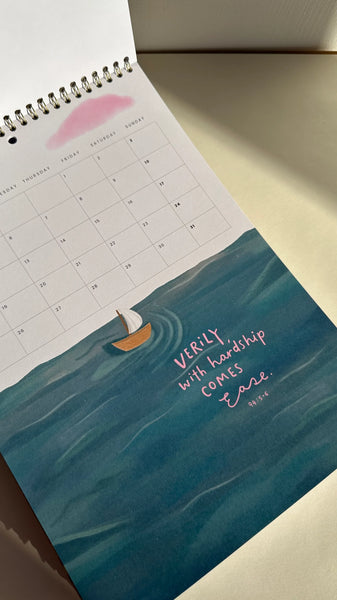 THURSDAY FRIDAY SATURDAY SUNDAY
1 2 3
6 7 8 9 10
13 14 15 16 17
19 20 21 22 23 24
26 27 28 29 30 31
VERILY,
with hardship
COMES
Ease.
94:5-6